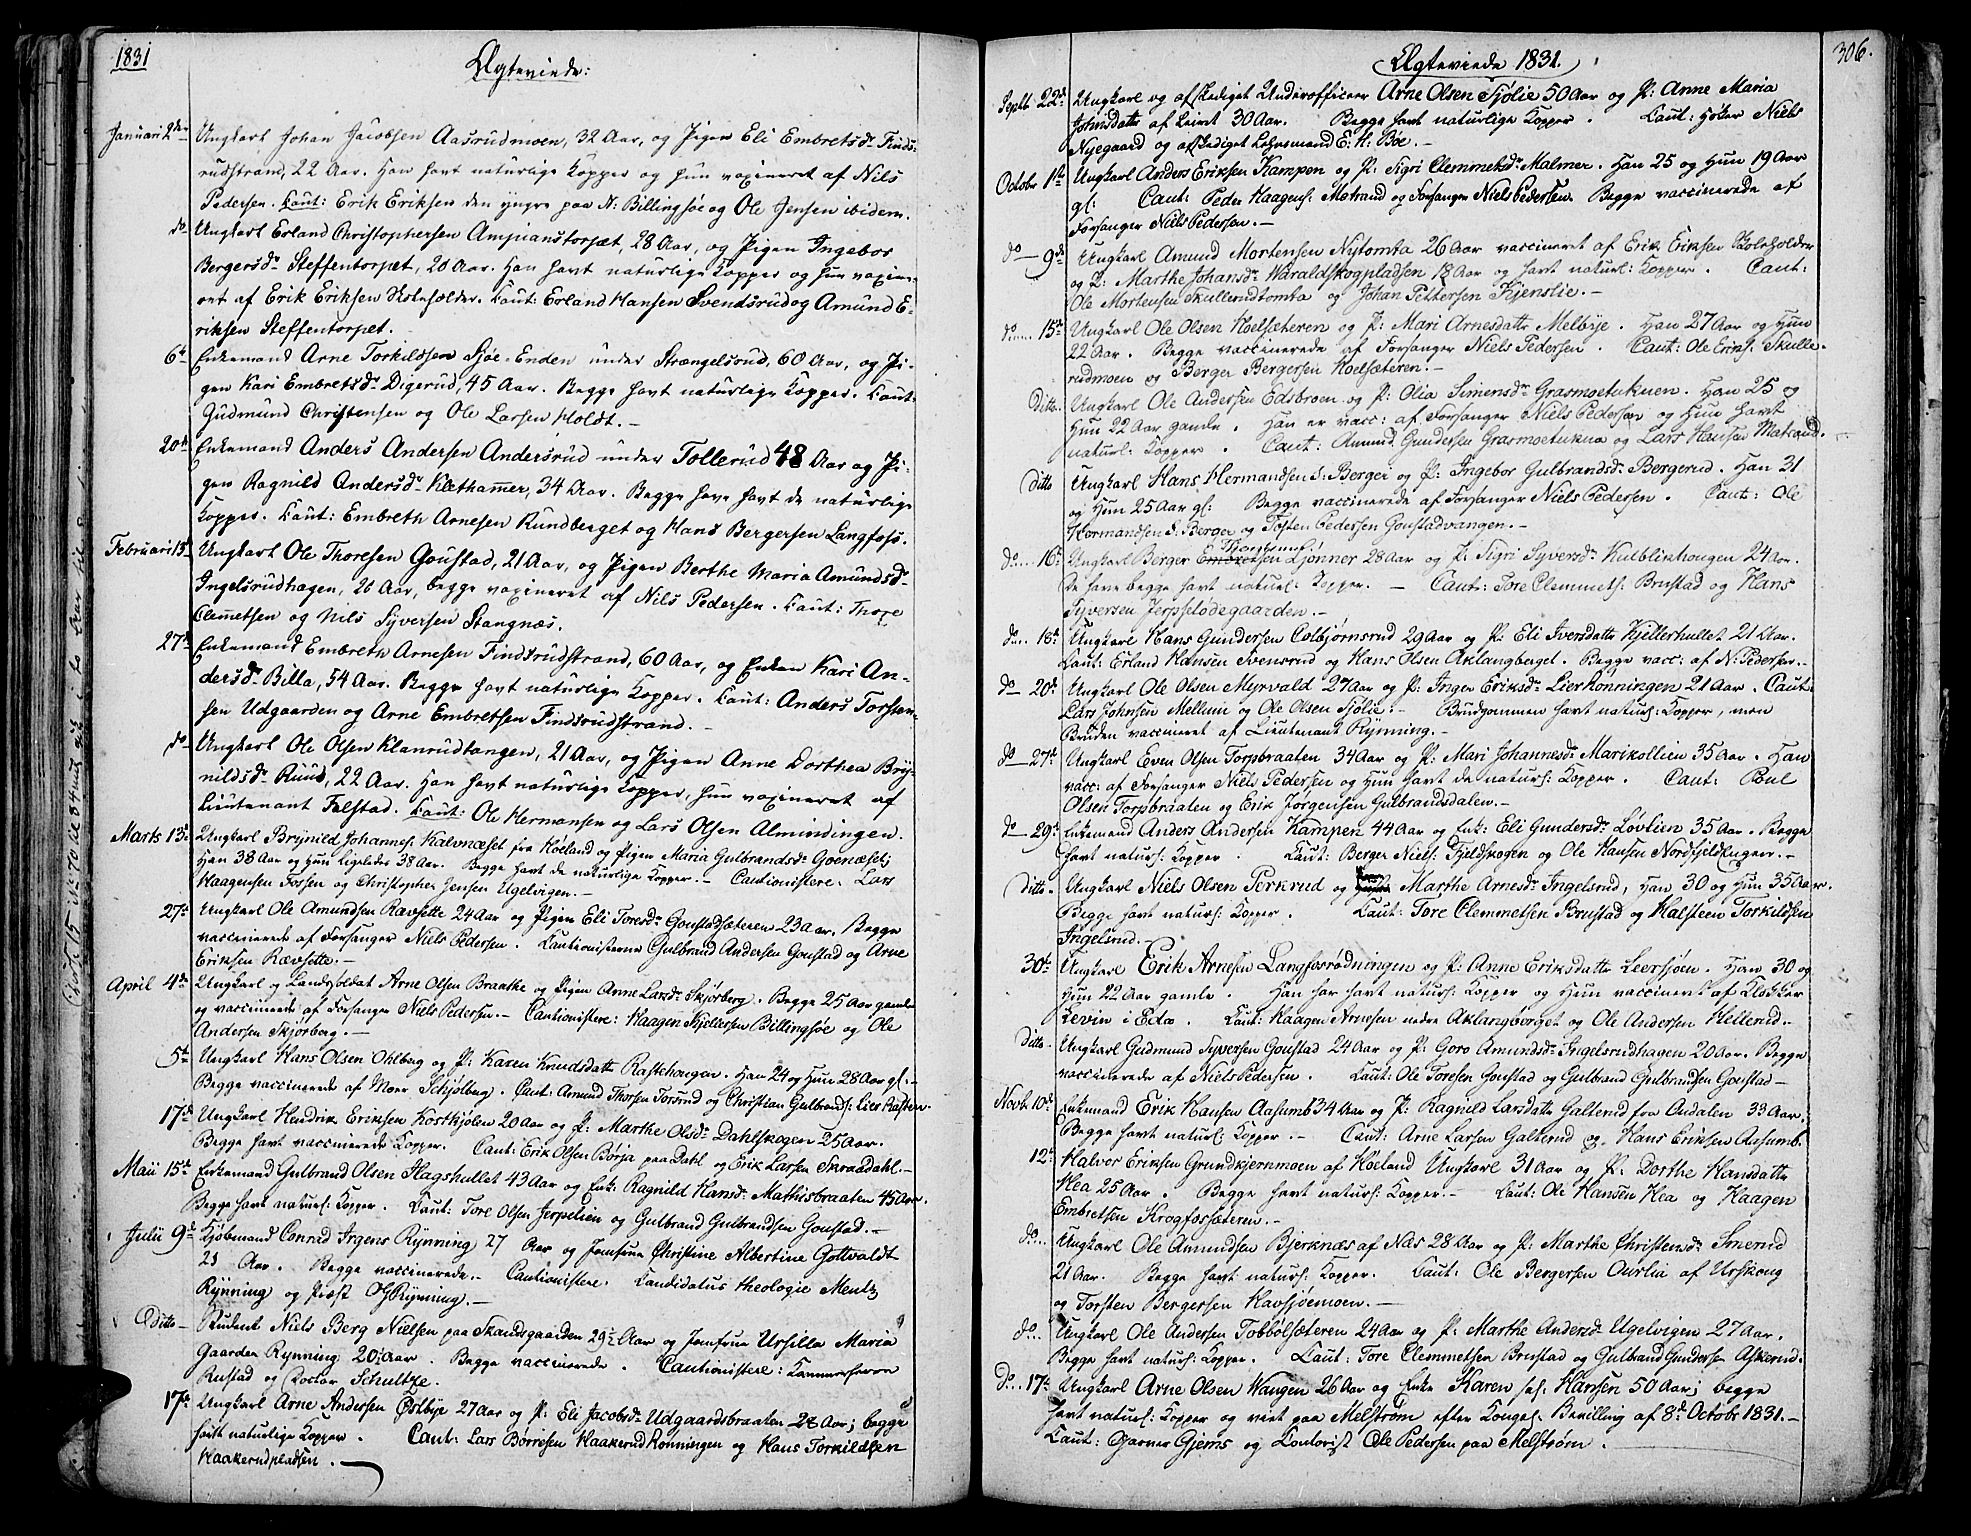 1831
Ægteviede:
Januari 2den Ungkarl Johan Jacobsen Aasrudmoen, 32 Aar, og Pigen Eli Embretsdr Finds-
rudstrand, 22 Aar. Han havt naturlige Kopper og hun vaxineret af Nils
Pedersen. Caut: Erik Eriksen den yngre paa N: Billingsøe og Ole Jensen ibidem.
do Ungkarl Erland Christophersen Ampianstorpæt, 28 Aar, og Pigen Ingebor
Bergersdr Steffentorpet, 20 Aar. Han havt naturlige Kopper og hun vaxine-
ret af Erik Eriksen Skoleholder. Caut: Erland Hansen Svendsrud og Amund E-
riksen Steffentorpet.
6te Enkemand Arne Torkildsen Sjøe-Enden under Strængelsrud, 60 Aar, og Pi-
gen Kari Embretsdr Digerud, 45 Aar. Begge havt naturlige Kopper. Caut:
Gudmund Christensen og Ole Larsen Holdt.-
20de Enkemand Anders Andersen Andersrud under Tollerud 48 Aar og Pi-
gen Ragnild Andersdr Klethammer, 34 Aar. Begge have havt de naturlige
Kopper. Caut: Embreth Arnesen Rundberget og Hans Bergersen Langfoss.
Februari 13de Ungkarl Ole Thoresen Goustad, 21 Aar, og Pigen Berthe Maria Amundsdr
Ingelsrudhagen, 26 Aar, begge vaxineret af Nils Pedersen. Caut: Thore
Clemetsen og Nils Syversen Stangnæs.
27de Enkemand Embreth Arnesen Findsrudstrand, 60 Aar, og Enken Kari An-
dersdr Billa, 54 Aar. Begge havt naturlige Kopper. Caut: Anders Torsten-
sen Udgaarden og Arne Embretsen Findsrudstrand.
do Ungkarl Ole Olsen Klanrudtangen, 21 Aar, og Pigen Anne Dorthea Bry-
nildsdr Ruud, 22 Aar. Han havt naturlige Kopper, hun vaxineret af
Lieutenant Felstad. Caut: Ole Hermansen og Lars Olsen Almindingen.
Marts 13de Ungkarl Brynild Johannes: Kalvnæset fra Høeland og Pigen Maria Gulbrandsdr Goenæset;
Han 38 Aar og Hun ligeledes 38 Aar. Begge havt de naturlige Kopper.- Cautionistere: Lars
Haagensen Fossen og Christopher Jensen Ugelvigen.-
27de Ungkarl Ole Amundsen Rævsette 24 Aar og Pigen Eli Toresdr Goustadsæteren 23 Aar. Begge
vaccinerede af Forsanger Niels Pedersen. Cautionisterne Gulbrand Andersen Goustad og Arne
Eriksen Rævsette.-
April 4de Ungkarl og Landsoldat Arne Olsen Braathe og Pigen Anne Larsdr Skjørberg. Begge 25 Aar gamle
og vaccinerede af Forsanger Niels Pedersen.- Cautionistere: Haagen Kjeldsen Billingsøe og Ole
Andersen Skjørberg.-
5te Ungkarl Hans Olsen Ohlberg og P: Karen Knudsdatter Raskhougen. Han 24 og Hun 28 Aar gl:-
Begge vaccinerede af Moer Schjølberg. Caut: Amund Thorsen Torsrud og Christian Gulbrands: Lier Hasten.
17de Ungkarl Hendrik Eriksen Kostkjølen 20 Aar og P: Marthe Olsdr Dahlskogen 25 Aar.
Begge havt vaccinerede Kopper. Caut: Erik Olsen Børja paa Dahl og Erik Larsen Skraadahl.-
Maii 15de Enkemand Gulbrand Olsen Flagshullet 43 Aar og Enk: Ragnild Hansdr Mathisbraaten 45 Aar.
Begge havt naturl: Kopper. Caut: Tore Olsen Jerpelien og Gulbrand Gulbrandsen Goustad.-
Julii 9de Kjøbmand Conrad Irgens Rynning 27 Aar og Jomfrue Christine Albertine Gottwaldt
23 Aar. Begge vaccinerede.- Cautionistere: Candidatus theologie Mentz
Rynning og Præst O: Rynning.-
Ditto- Student Niels Berg Nielsen paa Skandsgaarden 29½ Aar og Jomfrue Ursilla Maria
Gaarder Rynning 20 Aar. Begge vaccinerede. Cautionistere: Kammerherre
Rustad og Doctor Schultze.
17de Ungkarl Arne Andersen Østbye 27 Aar og P: Eli Jacobsdr Udgaardsbraaten 28 Aar; begge
havt naturlige Kopper. Caut: Lars Børresen Haakerud Rønningen og Hans Torkildsen
Haakerudpladsen.
Ægteviede 1831.
306.
Septb 22de Ungkarl og afskediget Underofficeer Arne Olsen Sjølie 50 Aar og P: Anne Maria
Johnsdatter af Leiret 30 Aar. Begge havt naturlige Kopper. Caut: Høker Niels
Nyegaard og afskediget Lehnsmand E. H: Bøe.-
Octobr 1ste Ungkarl Anders Eriksen Kampen og P: Sigri Clemmetsdr Malmer. Han 25 og Hun 19 Aar
gl: Caut: Peder Haagens: Motrand og Forsanger Niels Pedersen. Begge vaccinerede af
Forsanger Niels Pedersen.-
do 9de Ungkarl Amund Mortensen Nytomta 26 Aar vaccineret af Erik Eriksen Skoleholder
og P: Marthe Johansdr Waraldskogpladsen 18 Aar og havt naturl: Kopper. Caut:
Ole Mortensen Skullerudtomta og Johan Pettersen Kjenslie.-
do 15de Ungkarl Ole Olsen Hoelsæteren og P: Mari Arnesdatter Melbye. Han 27 Aar og Hun
22 Aar. Begge vaccinerede af Forsanger Niels Pedersen. Caut: Ole Eriks: Skulle-
rudmoen og Berger Bergersen Hoelsæteren.-
Ditto. Ungkarl Ole Andersen Edsbroen og P: Olia Simensdr Grasmoetuknen. Han 25 og
Hun 22 Aar gamle. Han er vacc: af Forsanger Niels Pedersen og Hun havt
naturl: Kopper. Caut: Amund Gundersen Grasmoetukna og Lars Hansen Matrand.
Ditto Ungkarl Hans Hermandsen S: Berger og P: Ingebor Gulbrandsdr Bergerud. Han 31
og Hun 25 Aar gl: Begge vaccinerede af Forsanger Niels Pedersen. Caut: Ole
Hermandsen S: Berger og Tosten Pedersen Goustadvangen.-
do 16de Ungkarl Berger Embretsen Ljønner 28 Aar og P: Sigri Syversdr Kulblikhougen 24 Aar.
De have begge havt naturl: Kopper.- Caut: Tore Clemmets: Brustad og Hans
Syversen Jerpsetødegaarden.-
do 18de Ungkarl Hans Gundersen Colbjørnsrud 29 Aar og P: Eli Iversdatter Kjellerhullet 21 Aar.
Caut: Erland Hansen Svensrud og Hans Olsen Aklangberget. Begge vacc: af N: Pedersen.-
do 20de Ungkarl Ole Olsen Myrvald 27 Aar og P: Inger Eriksdr Lierhønningen 21 Aar. Caut:
Lars Johnsen Mellum og Ole Olsen Sjølie.- Brudgommen havt naturl: Kopper, men
Bruden vaccineret af Lieutenant Rynning.-
do 27de Ungkarl Even Olsen Torpbraaten 34 Aar og P: Mari Johannesdr Marikollien 35 Aar. Han
vacc: af Forsanger Niels Pedersen og Hun havt de naturl: Kopper. Caut: Poul
Olsen Torpbraaten og Erik Jørgensen Gulbrandsdalen.-
do 29de Enkemand Anders Andersen Kampen 44 Aar og Enk: Eli Gundersdr Løvlien 35 Aar. Begge
havt naturl: Kopper. Caut: Berger Niels: Fjeldskogen og Ole Hansen Nordfjeldengen.-
Ditto. Ungkarl Niels Olsen Perkrud og Marthe Arnesdr Ingelsrud, Han 30 og Hun 35 Aar.
Begge havt naturl: Kopper. Caut: Tore Clemmetsen Brustad og Halsteen Torkildsen
Ingelsrud.-
30te Ungkarl Erik Arnesen Langfosrødningen og P: Anne Eriksdatter Leersjøen. Han 30 og
Hun 22 Aar gamle. Han har havt naturl: Kopper og Hun vaccineret af Klokker
Levin i Eda. Caut: Haagen Arnesen nedre Aklangberget og Ole Andersen Hellerud.-
Ditto- Ungkarl Gudmund Syversen Goustad 24 Aar og P: Goro Amundsdr Ingelsrudhagen 20 Aar. Begge
vaccinerede af Niels Pedersen. Caut: Ole Toresen Goustad og Gulbrand Gulbrandsen Goustad-
Novb 10de Enkemand Erik Hansen Aasumb 34 Aar og P: Ragnild Larsdatter Galterud fra Oudalen 33 Aar.
Begge havt naturl: Kopper.- Caut: Arne Larsen Galterud og Hans Eriksen Aasumb.
12te Halvor Eriksen Grundkjernmoen af Høeland Ungkarl 31 Aar og P: Dorthe Hansdatter
Hea 25 Aar. Begge havt naturl: Kopper.- Caut: Ole Hansen Hea og Haagen
Embretsen Krogfossæteren.-
do Ungkarl Ole Amundsen Bjerknæs af Næs 28 Aar og P: Marthe Christensdr Smerud
21 Aar. Begge havt naturl: Kopper. Caut: Ole Bergersen Ourlia af Urskoug
og Torsten Bergersen Havsjøemoen.-
do Ungkarl Ole Andersen Tobbølsæteren 24 Aar og P: Marthe Andersdr Ugelvigen 27 Aar.
Begge havt naturl: Kopper. Caut: Tore Clemmetsen Brustad og Gulbrand Gundersen Askerud.
Do 17de Ungkarl Arne Olsen Wangen 26 Aar og Enke Karen sal: Hansen 50 Aar; begge
havt naturl: Kopper og viet paa Melstrøm efter Kongel: Bevilling af 8de Octobr 1831.-
Caut: Garver Gjems og Contorist Ole Pedersen paa Melstrøm.